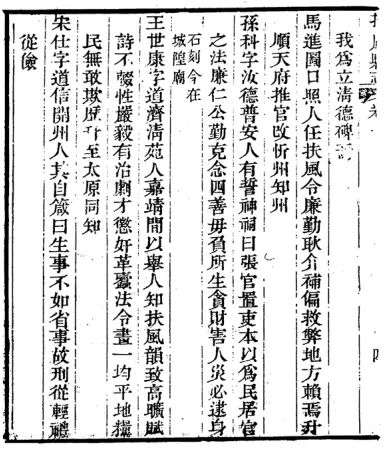 扶風縣志 卷
我爲立清德碑
馬進圖口照人任扶風令廉勤耿介補偏救弊地方賴焉升
順天府推官改忻州知州
孫科字汝德普安人有誓神祠曰張官置吏本以爲民居官
之法廉仁公勤克念四善毋負所生貪財害人災必逮身
石刻今在
城隍廟
王世康字道濟清苑人嘉靖間以舉人知扶風韻致高曠賦
詩不輟性嚴毅有治劇才懲奸革蠹法令畫一均平地糧
民無敢欺 至太原同知
宋仕字道信開州人其自箴曰生事不如省事故刑從輕禮
從儉
四